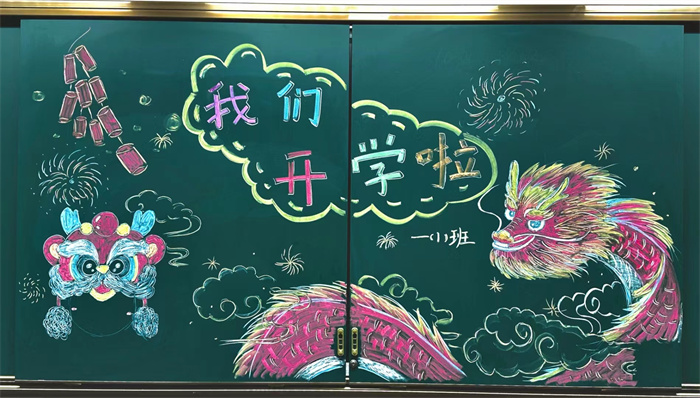 我们
开学啦
一(1)班